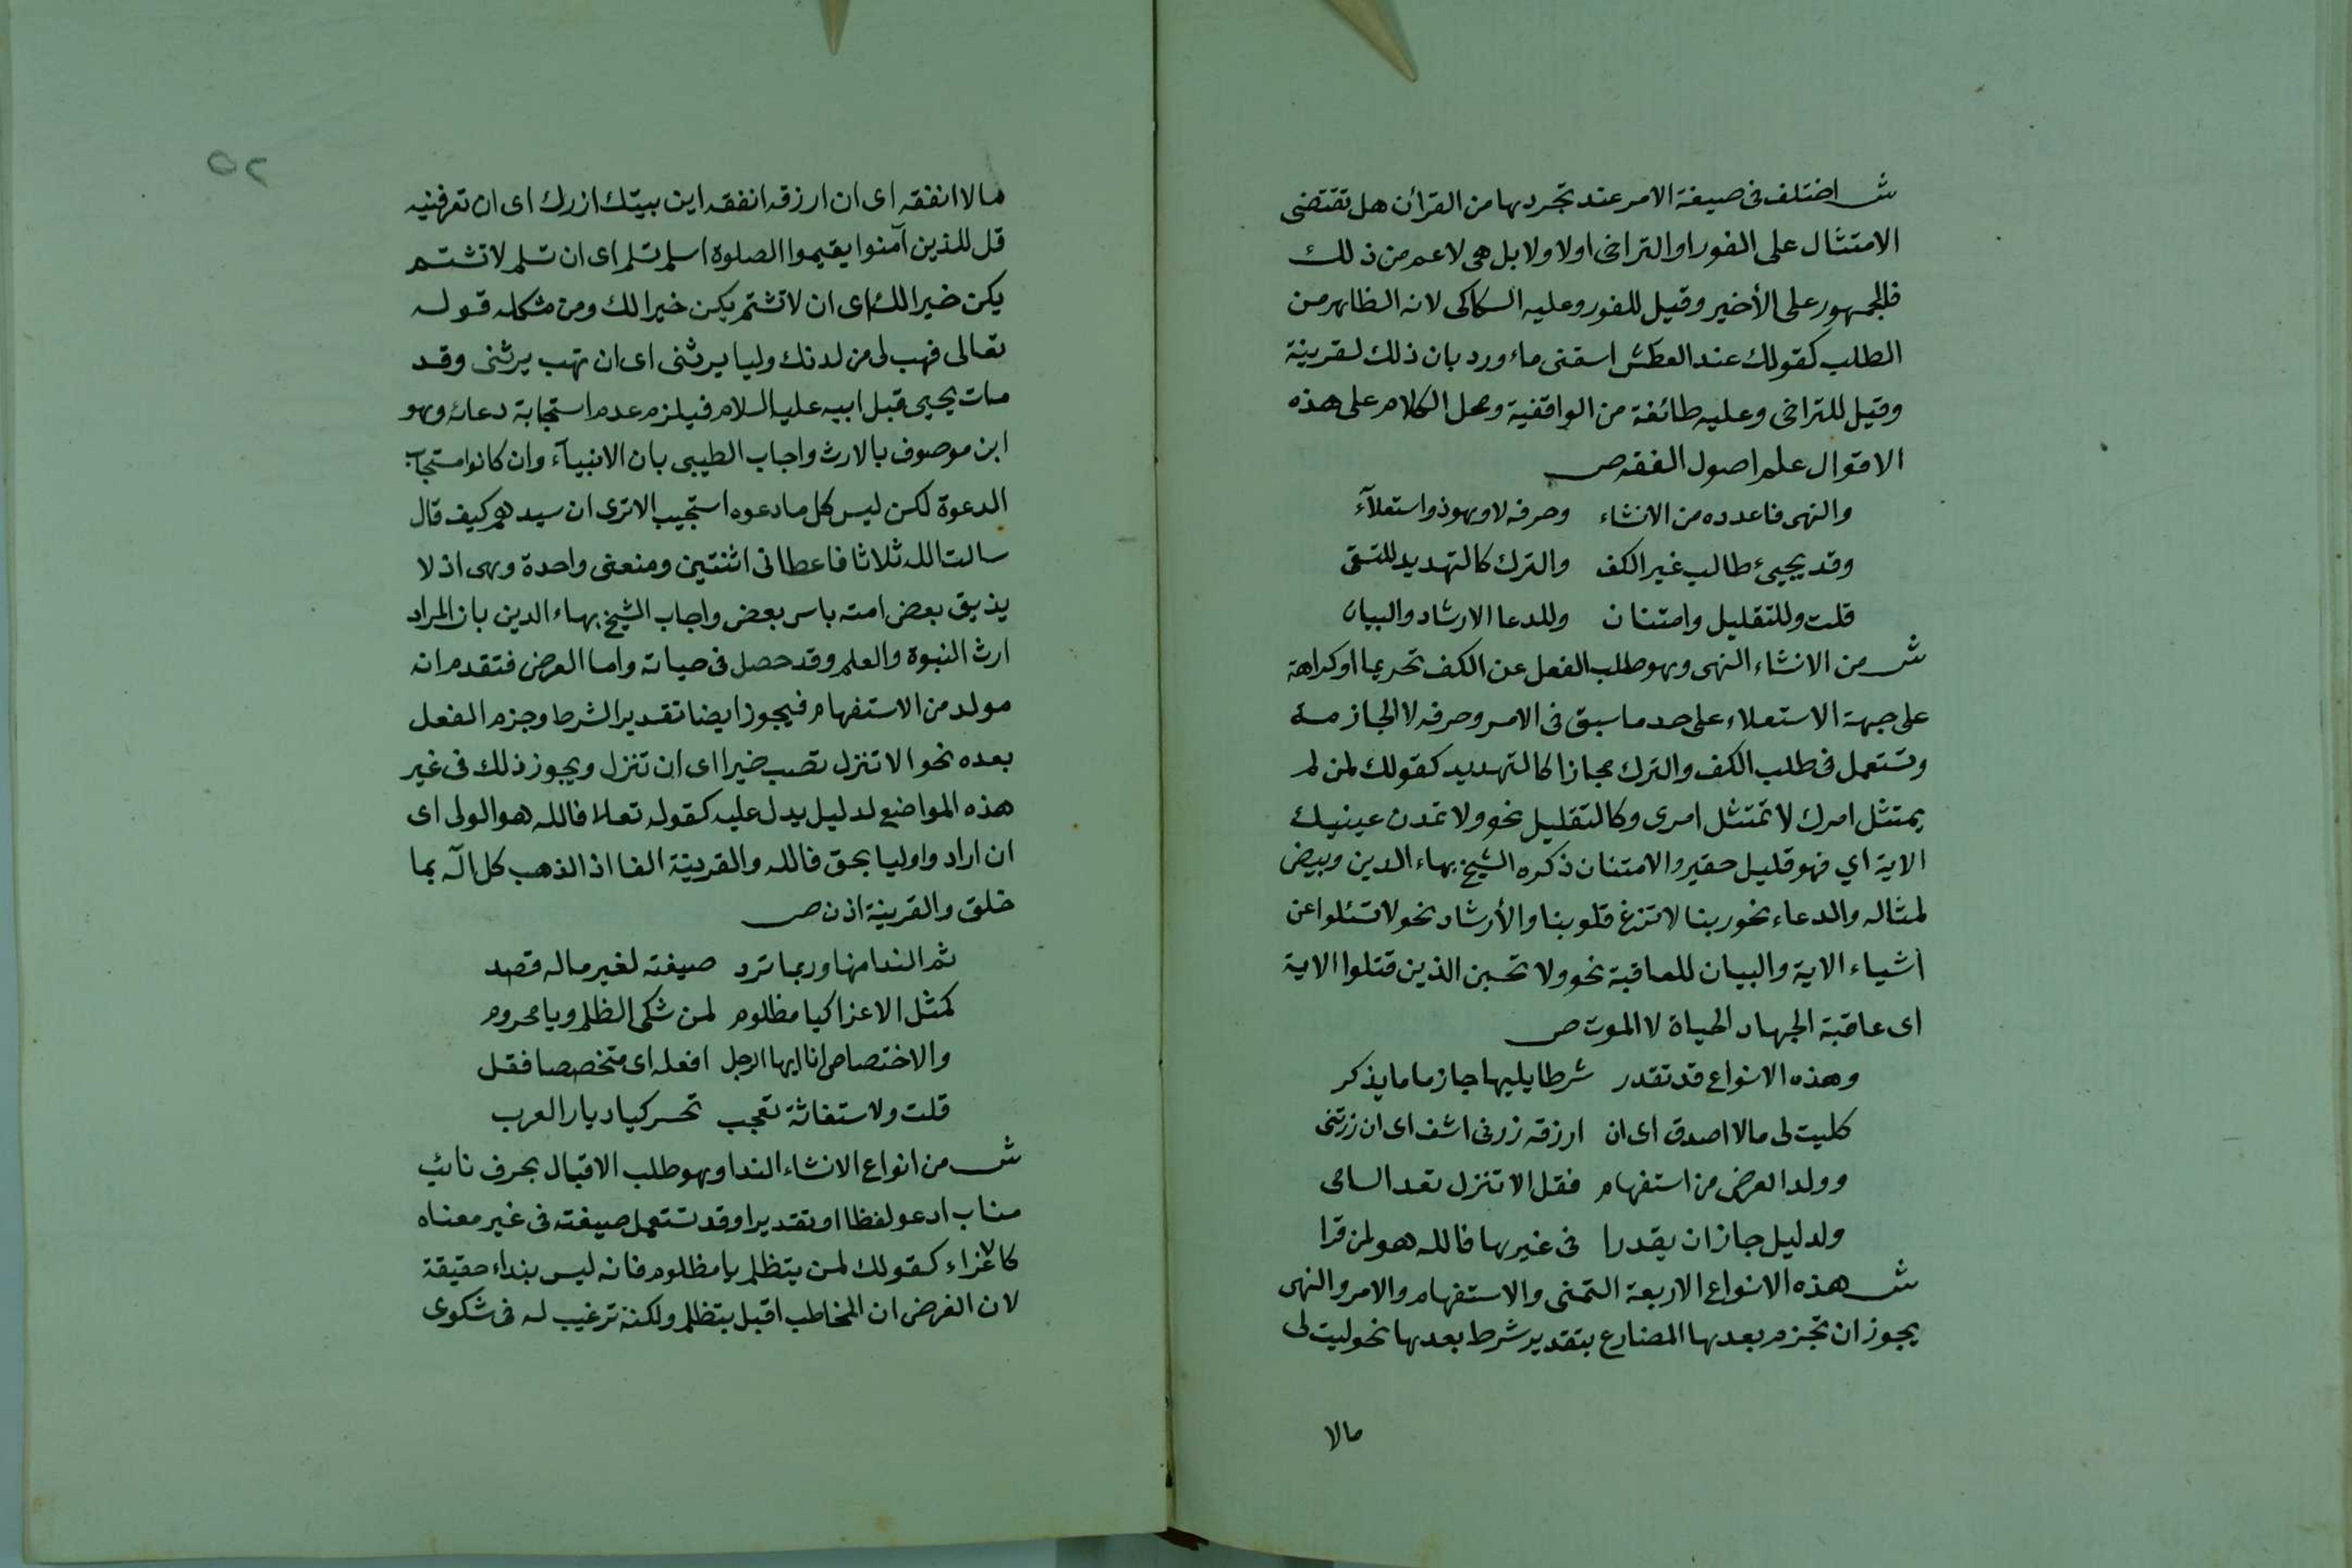 ش اختلف فى صيغة الامر عند تجردها من القرأن هل تقتضى
الامتثال على الفور او التراخى اولا ولا بل هى لاعم من ذلك
فالجمهور على الأخير وقيل للفور وعليه السكاكى لانه الظاهر من
الطلب كقولك عند العطش اسقنى ماء ورد بان ذلك لقرينة
وقيل للتراخى وعليه طائفة من الواقفية ومحل الكلام على هذه
الاقوال علم اصول الفقه ص
والنهى فاعدده من الانشاء وحرفه لا وهو ذو استعلآء
وقد يجيىء طالب غير الكف والترك كالتهديد للتشقى
قلت وللتقليل وامتنان وللدعا الارشاد والبيان
ش من الانشاء النهى وهو طلب الفعل عن الكف تحريما اوكراهة
على جهة الاستعلاء على حد ما سبق فى الامر وحرفه لا الجازمة
وتستعمل فى طلب الكف والترك مجازا كالتهديد كقولك لمن لم
يمتثل امرك لا تمتثل امرى وكالتقليل نحو ولا تمدن عينيك
الاية اي فهو قليل حقير والامتنان ذكره الشيخ بهاء الدين وبيض
لمثاله والدعاء نحو ربنا لا تزغ قلوبنا والأرشاد نحو لا تسئلوا عن
اشياء الاية والبيان للعاقبة نحو ولا تحسبن الذين قتلوا الاية
اى عاقبة الجهاد الحياة لا الموت ص
وهذه الانواع قد تقدر شرطا يليها جازما ما يذكر
كليت لى مالا اصدق اى ان ارزقه زرنى اشف اى ان زرتنى
وولد العرض من استفهام فقل الا تنزل تعد السامى
ولدليل جاز ان يقدرا فى غيرها فالله هو لمن قرا
ش هذه الانواع الاربعة التمنى والاستفهام والامر والنهى
يجوز ان تجزم بعدها المضارع بتقدير شرط بعدها نحو ليت لى
مالا
٥٢
مالا انفقه اى ان ارزقه انفقه اين بيتك ازرك اى ان تعرفنيه
قل للذين آمنوا يقيموا الصلوة اسلم تسلم اى ان تسلم لا تشتم
يكن خيرا لك اى ان لا تشتم يكن خيرا لك ومن مشكله قوله
تعالى فهب لى من لدنك وليا يرثنى اى ان تهب يرثنى وقد
مات يحيى قبل ابيه عليه السلام فيلزم عدم استجابة دعائه وهو
ابن موصوف بالارث واجاب الطيبى بان الانبيآء وان كانوا مستجاب
الدعوة لكن ليس كل ما دعوه استجيب الا ترى ان سيدهم كيف قال
سالت الله ثلاثا فاعطانى اثنتين ومنعنى واحدة وهى ان لا
يذيق بعض امته باس بعض واجاب الشيخ بهاء الدين بان المراد
ارث النبوة والعلم وقد حصل فى حياته واما العرض فتقدم انه
مولد من الاستفهام فيجوز ايضا تقدير الشرط وجزم الفعل
بعده نحو الا تنزل تصب خيرا اى ان تنزل ويجوز ذلك فى غير
هذه المواضع لدليل يدل عليه كقوله تعلا فالله هو الولى اى
ان ارادوا وليا بحق فالله والقرينة الفا اذا لذهب كل اله بما
خلق والقرينة اذن ص
ثم الندا منها وربما ترد صيغته لغير ما له قصد
كمثل الاغرا كيا مظلوم لمن شكى الظلم ويا محروم
والاختصاص انا ايها الرجل افعله اى متخصصا فقل
قلت ولاستغاثة تعجب تحسر كيا ديار العرب
ش من انواع الانشاء الندا وهو طلب الاقبال بحرف نائب
مناب ادعو لفظا او تقديرا وقد تستعمل صيغته فى غير معناه
كالاغراء كقولك لمن يتظلم يا مظلوم فانه ليس بنداء حقيقة
لان الغرض ان المخاطب اقبل يتظلم ولكنه ترغيب له فى شكوى